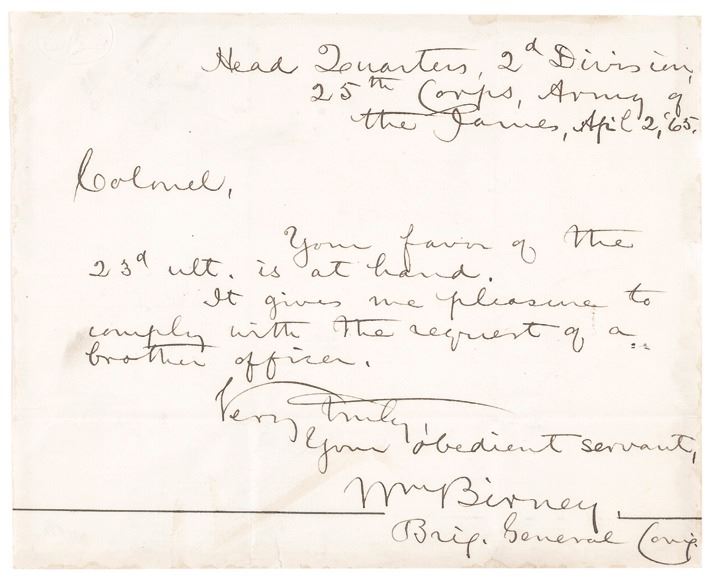 Head Quarters, 2d Division,
25th Corps, Army of
the James, Apil 2,'65.
Colonel,
Your favor of the
23d ult. is at hand.
It gives me pleasure to
comply with the request of a
brother officer.
Very truly,
Your obedient servant,
Wm Birney,
Brig. General Comg